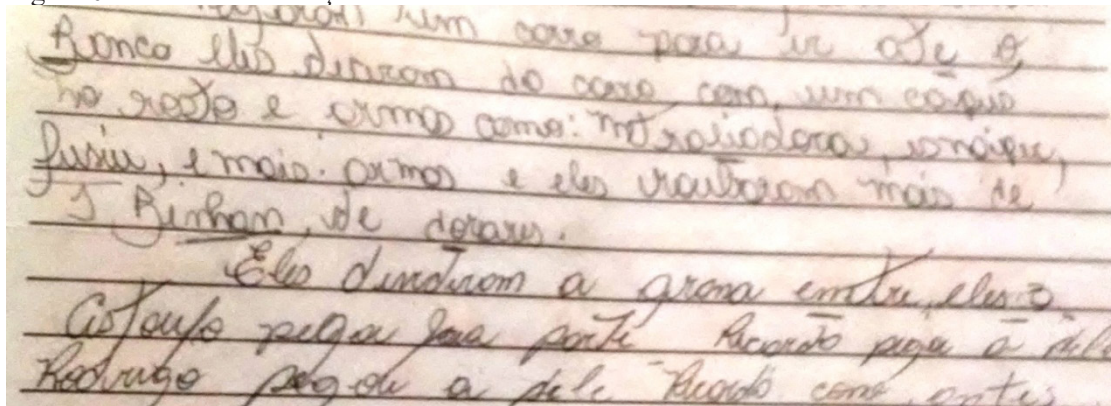 um carro para ir até o
Banco eles desiram do carro com um capuis
no rosto e armas como: Mtraliadora, isnaipe,
fusiu, e mais armas e eles roubaram mais de
1 Binhan, de dorares.
Eles dividiram a grana entre eles o
Astoufo pegou sua parte Ricardo pegou a dele
Rodrigo pegou a dele Ricardo como antes